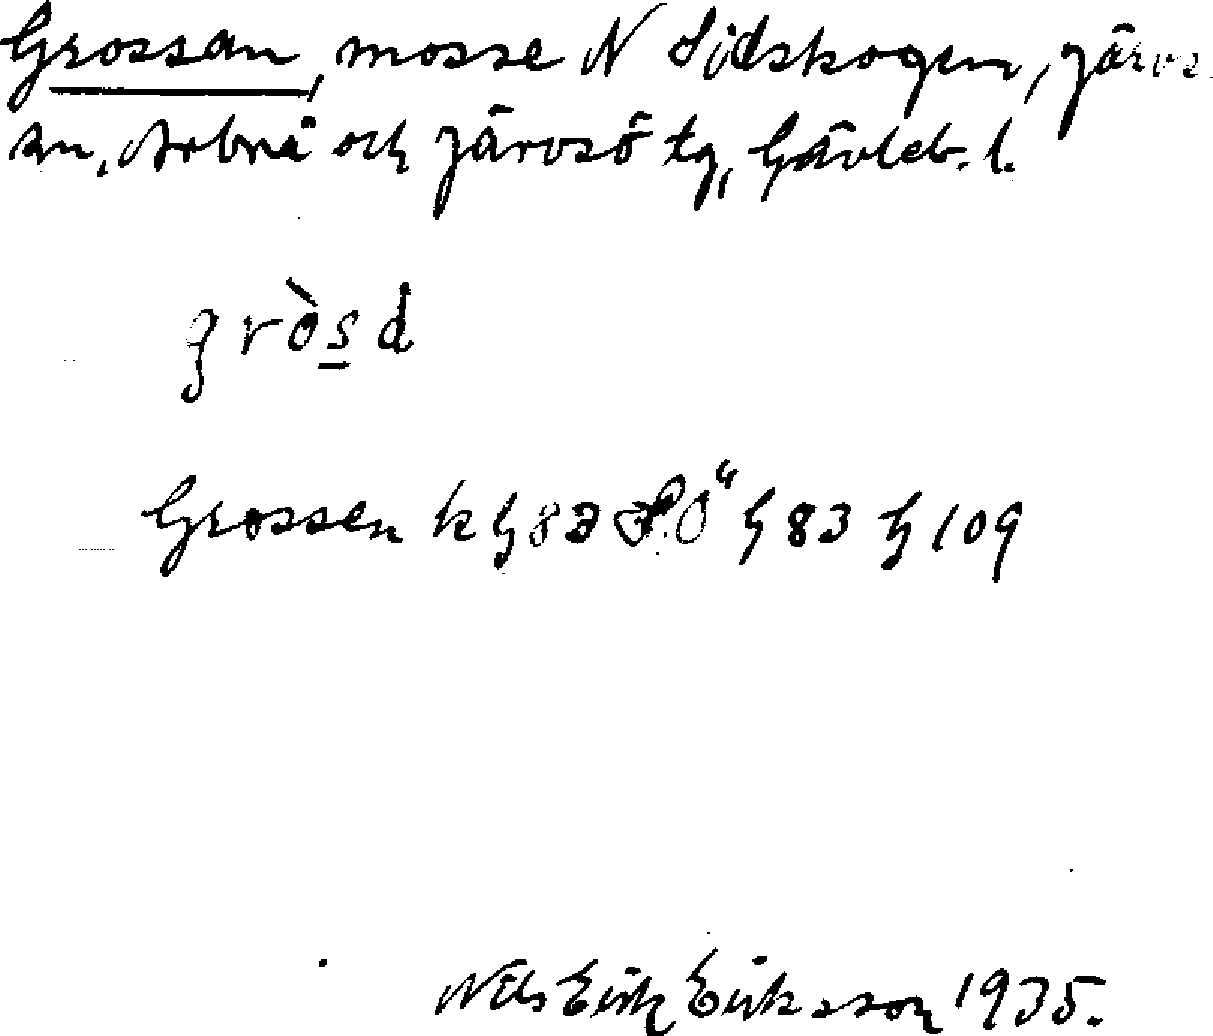 Grossan, mosse N Sidskogen, Järvs
sn, Arbrå och Järvsö tg, Gävleb. l.
gròs̲d
Grossen k h 83 Ö h 83 h 109
Nils Erik Eriksson 1935.